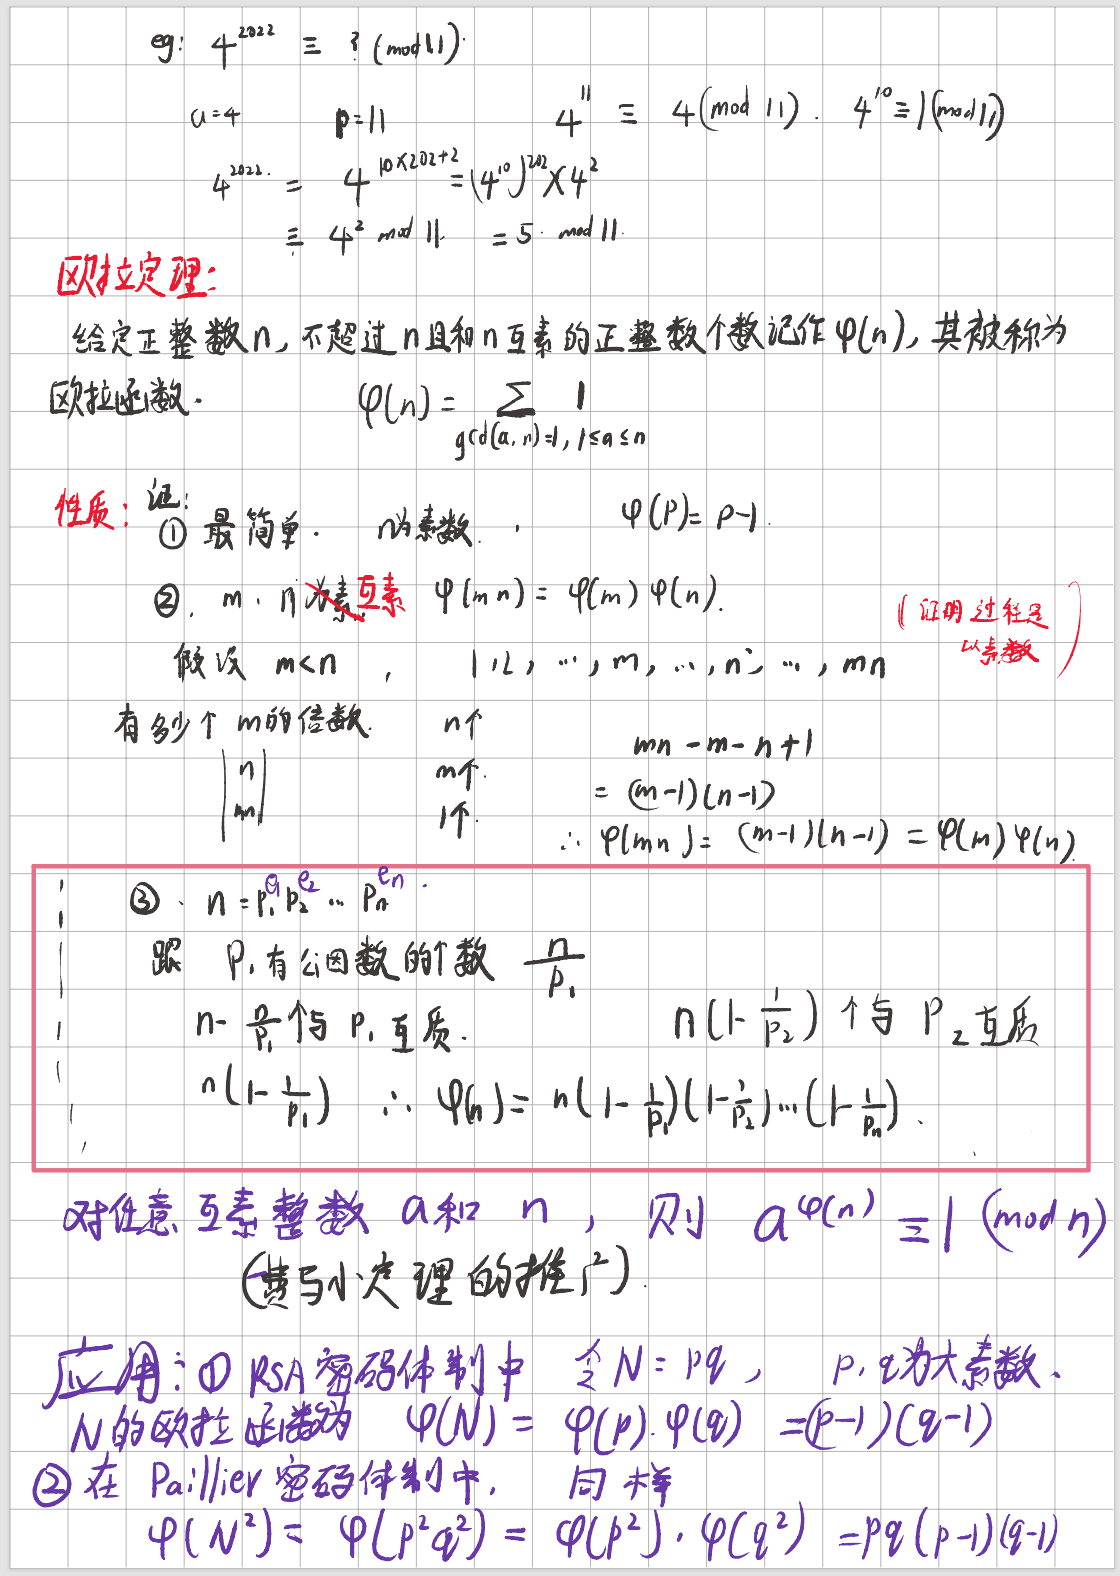 eg: 4^2022 ≡ ? (mod 11).
a=4 p=11 4^11 ≡ 4 (mod 11). 4^10 ≡ 1 (mod 11)
4^2022. = 4^10×202+2 = (4^10)^202 × 4^2
≡ 4^2 mod 11. = 5. mod 11.
欧拉定理:
给定正整数n, 不超过n且和n互素的正整数个数记作φ(n), 其被称为
欧拉函数. φ(n) = ∑ 1
gcd(a,n)=1, 1≤a≤n
性质: 证:
① 最简单. n为素数. , φ(p) = p-1.
②. m. n 为素 互素 φ(mn) = φ(m) φ(n).
(证明过程是
以素数)
假设 m<n , 1, 2, ..., m, ..., n, ..., mn
有多少个 m的倍数. n个
n m个.
mn 1个.
mn - m - n + 1
= (m-1)(n-1)
∴ φ(mn) = (m-1)(n-1) = φ(m) φ(n).
③. n = p₁^e₁ p₂^e₂ ... pₙ^eₙ.
跟 p₁有公因数的个数 n/p₁
n - n/p₁ 个与 p₁ 互质. n(1 - 1/p₂) 个与 p₂ 互质
n(1 - 1/p₁) ∴ φ(n) = n(1 - 1/p₁)(1 - 1/p₂)...(1 - 1/pₙ).
对任意互素整数 a和 n , 则 a^φ(n) ≡ 1 (mod n)
(费马小定理的推广).
应用: ① RSA密码体制中 令 N = pq, p, q为大素数.
N的欧拉函数为 φ(N) = φ(p). φ(q) = (p-1)(q-1)
② 在 Paillier密码体制中, 同样
φ(N²) = φ(p²q²) = φ(p²). φ(q²) = pq(p-1)(q-1)